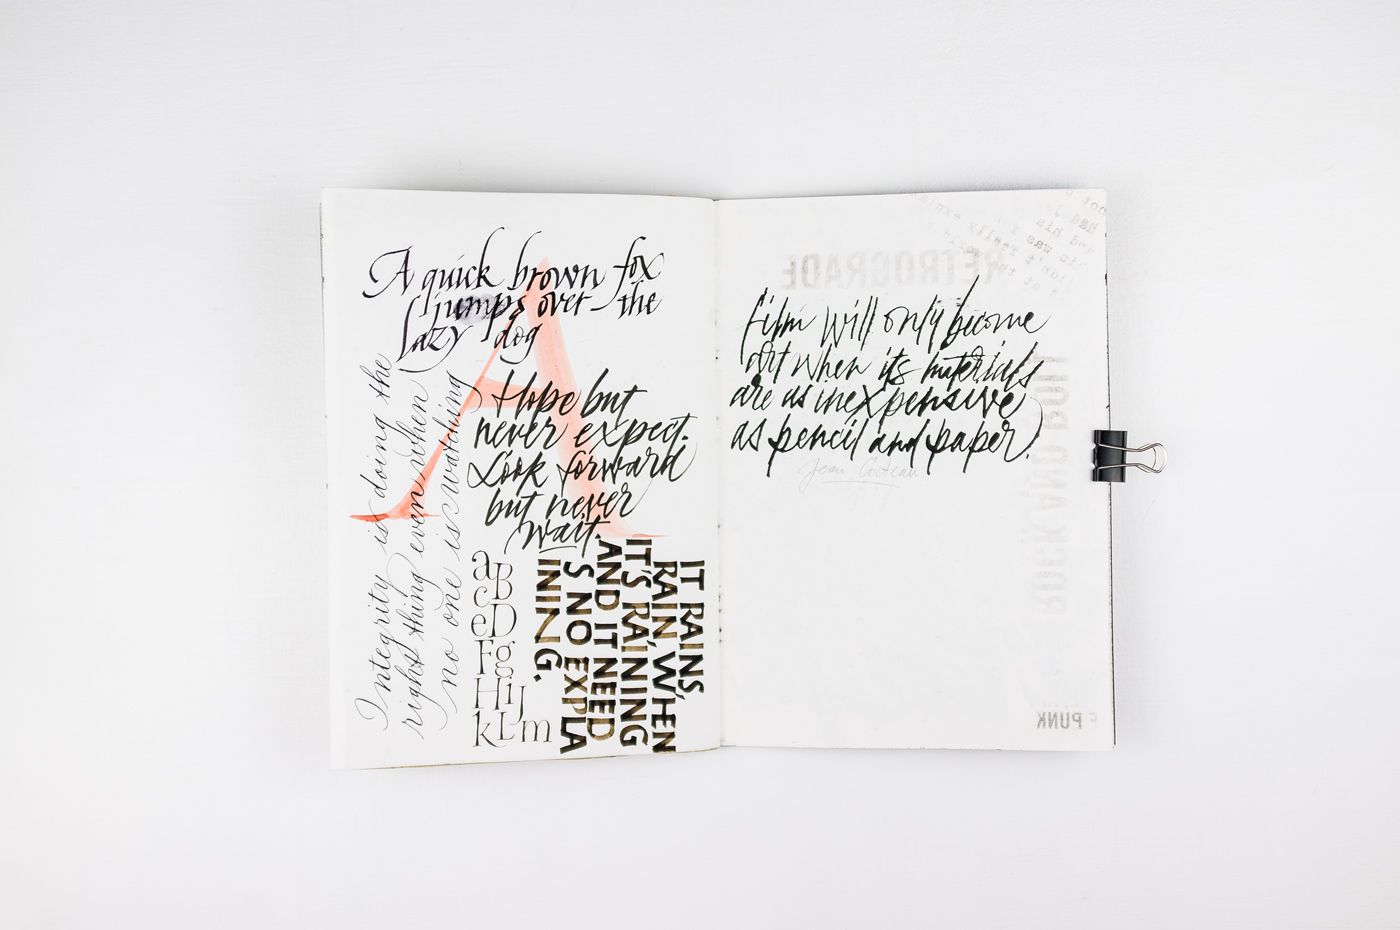 A quick brown fox
jumps over the
lazy dog
Integrity is doing the
right thing even when
no one is watching
A
Hope but
never expect.
Look forward
but never
wait.
aB
c
eD
Fg
HiJ
kLm
IT RAINS,
RAIN, WHEN
IT'S RAINING
AND IT NEED
S NO EXPLA
INING.
film will only become
art when its materials
are as inexpensive
as pencil and paper.
Jean Cocteau
RETROGRADE
ROCK AND ROLL
PUNK